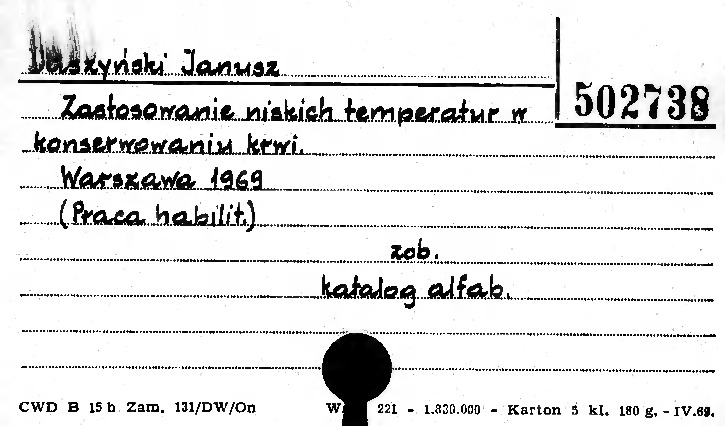 Daszyński Janusz
502738
Zastosowanie niskich temperatur w
konserwowaniu krwi.
Warszawa 1969
(Praca habilit.)
zob.
katalog alfab.
CWD B 15 b Zam. 131/DW/On 221 - 1.830.000 - Karton 5 kl. 180 g. - IV.69.